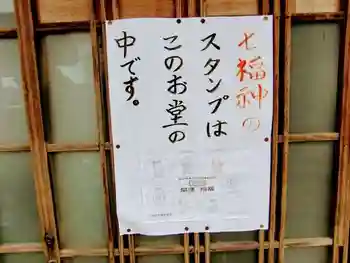 七福神の
スタンプは
このお堂の
中です。